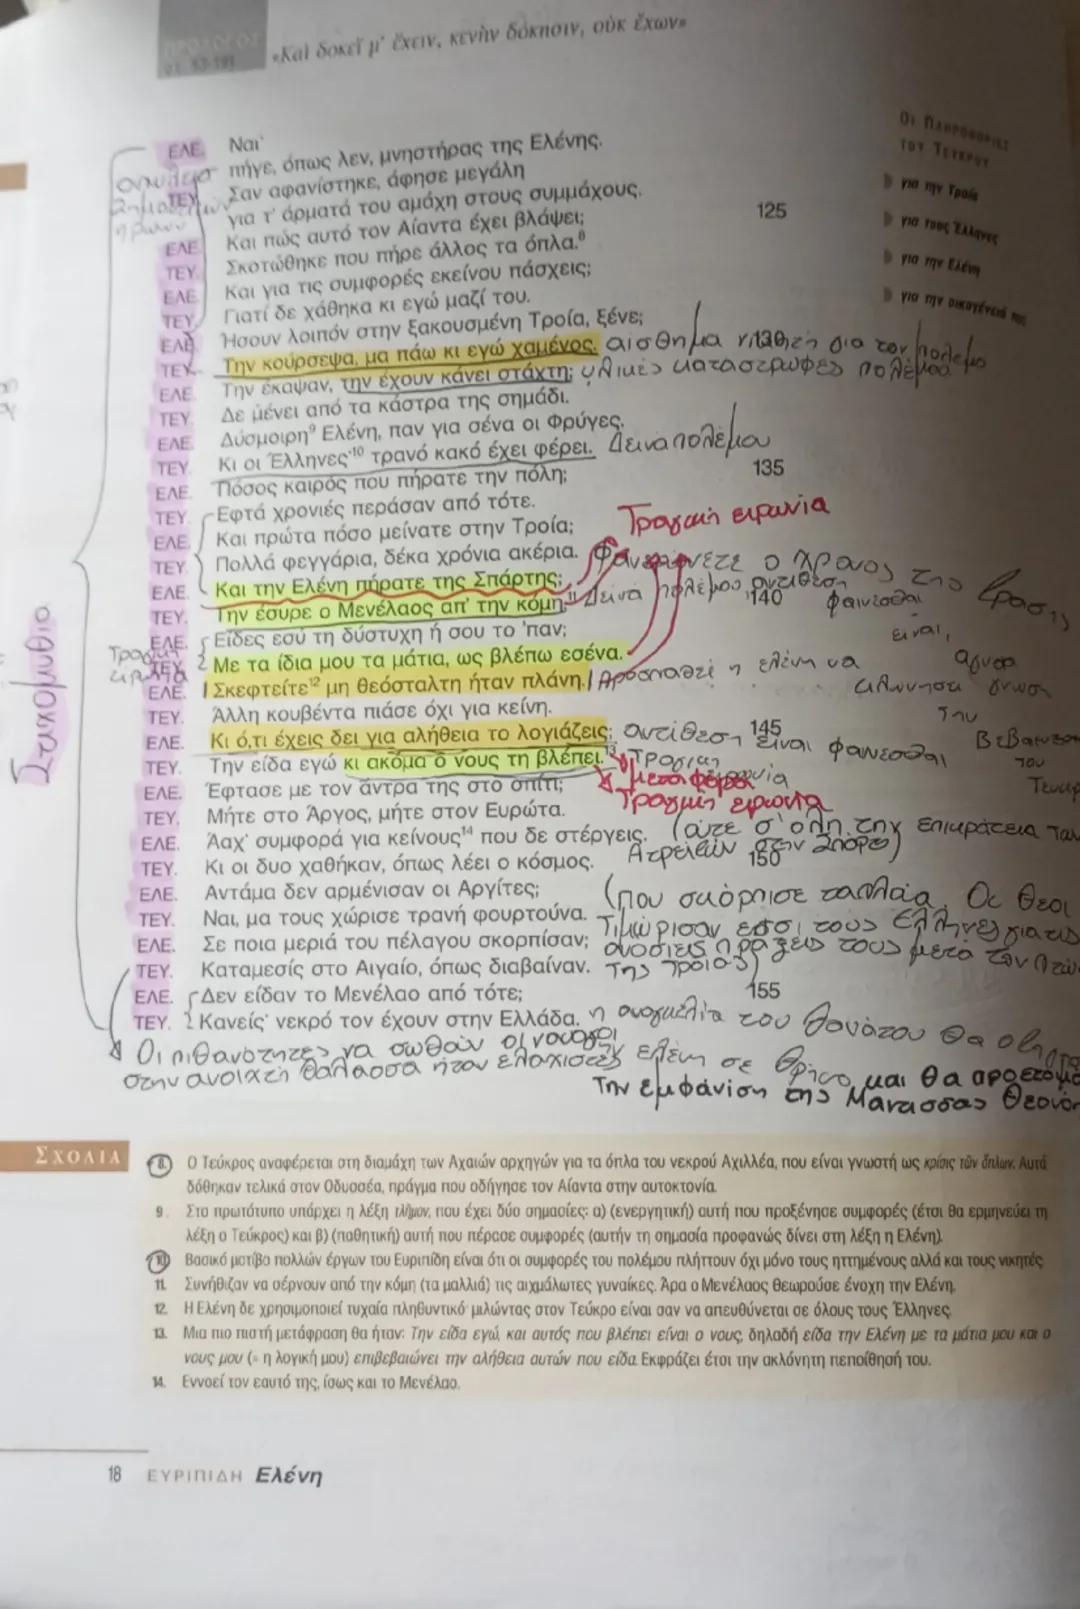 ΠΡΟΛΟΓΟΣ
«Καὶ δοκεῖ μ' ἔχειν, κενὴν δόκησιν, οὐκ ἔχων»
ΟΙ ΠΛΗΡΟΦΟΡΙΕΣ
ΤΟΥ ΤΕΥΚΡΟΥ
για την Τροία
για τους Έλληνες
για την Ελένη
για την οικογένειά της
ΕΛΕ. Ναι·
πήγε, όπως λεν, μνηστήρας της Ελένης.
ΤΕΥ. Σαν αφανίστηκε, άφησε μεγάλη
για τ' άρματά του αμάχη στους συμμάχους.
ΕΛΕ. Και πώς αυτό τον Αίαντα έχει βλάψει; 125
ΤΕΥ. Σκοτώθηκε που πήρε άλλος τα όπλα.8
ΕΛΕ. Και για τις συμφορές εκείνου πάσχεις;
ΤΕΥ. Γιατί δε χάθηκα κι εγώ μαζί του.
ΕΛΕ. Ήσουν λοιπόν στην ξακουσμένη Τροία, ξένε;
ΤΕΥ. Την κούρσεψα, μα πάω κι εγώ χαμένος. αίσθημα για τον πόλεμο
ΕΛΕ. Την έκαψαν, την έχουν κάνει στάχτη; υλικές καταστροφές πολέμου
ΤΕΥ. Δε μένει από τα κάστρα της σημάδι.
ΕΛΕ. Δύσμοιρη9 Ελένη, παν για σένα οι Φρύγες.
ΤΕΥ. Κι οι Έλληνες·10 τρανό κακό έχει φέρει. Δεινά πολέμου
ΕΛΕ. Πόσος καιρός που πήρατε την πόλη; 135
ΤΕΥ. Εφτά χρονιές περάσαν από τότε.
Τραγική ειρωνία
ΕΛΕ. Και πρώτα πόσο μείνατε στην Τροία;
ΤΕΥ. Πολλά φεγγάρια, δέκα χρόνια ακέρια. ο χρόνος της δράσης
ΕΛΕ. Και την Ελένη πήρατε της Σπάρτης;
ΤΕΥ. Την έσυρε ο Μενέλαος απ' την κόμη.11 Δεινά πολέμου, αντίθεση 140 φαίνεσθαι
είναι,
ΕΛΕ. Είδες εσύ τη δύστυχη ή σου το 'παν;
ΤΕΥ. Με τα ίδια μου τα μάτια, ως βλέπω εσένα.
ΕΛΕ. Σκεφτείτε12 μη θεόσταλτη ήταν πλάνη. προσπαθεί η ελένη να
ΤΕΥ. Άλλη κουβέντα πιάσε όχι για κείνη.
ΕΛΕ. Κι ό,τι έχεις δει για αλήθεια το λογιάζεις; αντίθεση 145 είναι φαίνεσθαι
ΤΕΥ. Την είδα εγώ κι ακόμα ο νους τη βλέπει.13 Τραγική
μεταφορά
ΕΛΕ. Έφτασε με τον άντρα της στο σπίτι;
Τραγική ειρωνία
ΤΕΥ. Μήτε στο Άργος, μήτε στον Ευρώτα.
ΕΛΕ. Άαχ· συμφορά για κείνους14 που δε στέργεις. (ούτε σ' όλη την επικράτεια των
ΤΕΥ. Κι οι δυο χαθήκαν, όπως λέει ο κόσμος. Ατρειδών 150
ΕΛΕ. Αντάμα δεν αρμένισαν οι Αργίτες;
ΤΕΥ. Ναι, μα τους χώρισε τρανή φουρτούνα. (που σκόρπισε τα πλοία. Οι Θεοί
ΕΛΕ. Σε ποια μεριά του πέλαγου σκορπίσαν; Τιμώρισαν έτσι τους Έλληνες για τις
ΤΕΥ. Καταμεσίς στο Αιγαίο, όπως διαβαίναν. ανόσιες πράξεις τους μετά την
της Τροίας)
ΕΛΕ. Δεν είδαν το Μενέλαο από τότε; 155
ΤΕΥ. Κανείς· νεκρό τον έχουν στην Ελλάδα. η αναγγελία του θανάτου θα
Στιχομυθία
Οι πιθανότητες να σωθούν οι ναυαγοί ελένη σε θρήνο και θα
στην ανοιχτή θάλασσα ήταν ελάχιστες
Την εμφάνιση της
ΣΧΟΛΙΑ
8. Ο Τεύκρος αναφέρεται στη διαμάχη των Αχαιών αρχηγών για τα όπλα του νεκρού Αχιλλέα, που είναι γνωστή ως κρίσις τῶν ὅπλων. Αυτά
δόθηκαν τελικά στον Οδυσσέα, πράγμα που οδήγησε τον Αίαντα στην αυτοκτονία.
9. Στο πρωτότυπο υπάρχει η λέξη τλήμων, που έχει δύο σημασίες: α) (ενεργητική) αυτή που προξένησε συμφορές (έτσι θα ερμηνεύει τη
λέξη ο Τεύκρος) και β) (παθητική) αυτή που πέρασε συμφορές (αυτήν τη σημασία προφανώς δίνει στη λέξη η Ελένη).
10. Βασικό μοτίβο πολλών έργων του Ευριπίδη είναι ότι οι συμφορές του πολέμου πλήττουν όχι μόνο τους ηττημένους αλλά και τους νικητές.
11. Συνήθιζαν να σέρνουν από την κόμη (τα μαλλιά) τις αιχμάλωτες γυναίκες. Άρα ο Μενέλαος θεωρούσε ένοχη την Ελένη.
12. Η Ελένη δε χρησιμοποιεί τυχαία πληθυντικό· μιλώντας στον Τεύκρο είναι σαν να απευθύνεται σε όλους τους Έλληνες.
13. Μια πιο πιστή μετάφραση θα ήταν: Την είδα εγώ, και αυτός που βλέπει είναι ο νους, δηλαδή είδα την Ελένη με τα μάτια μου και ο
νους μου (= η λογική μου) επιβεβαιώνει την αλήθεια αυτών που είδα. Εκφράζει έτσι την ακλόνητη πεποίθησή του.
14. Εννοεί τον εαυτό της, ίσως και το Μενέλαο.
18 ΕΥΡΙΠΙΔΗ Ελένη